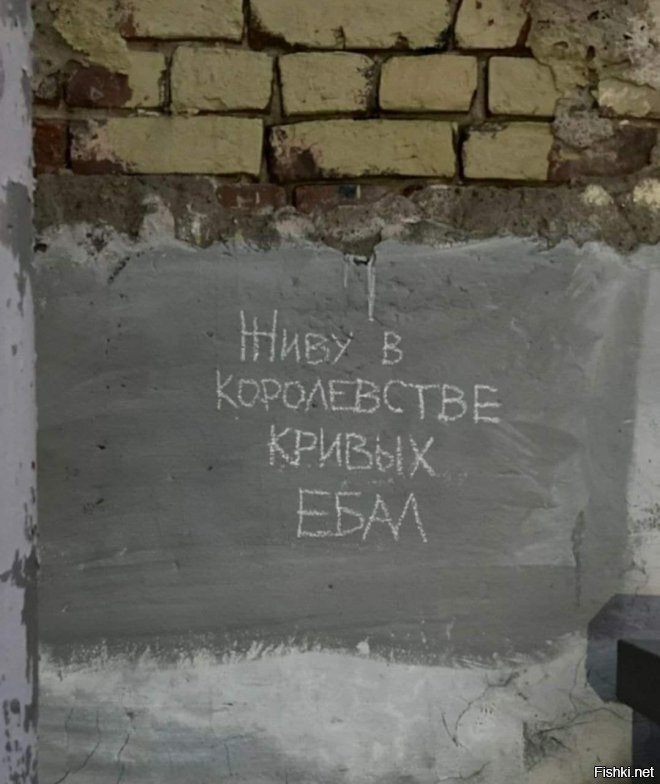 Живу в
королевстве
кривых
ебал
Fishki.net